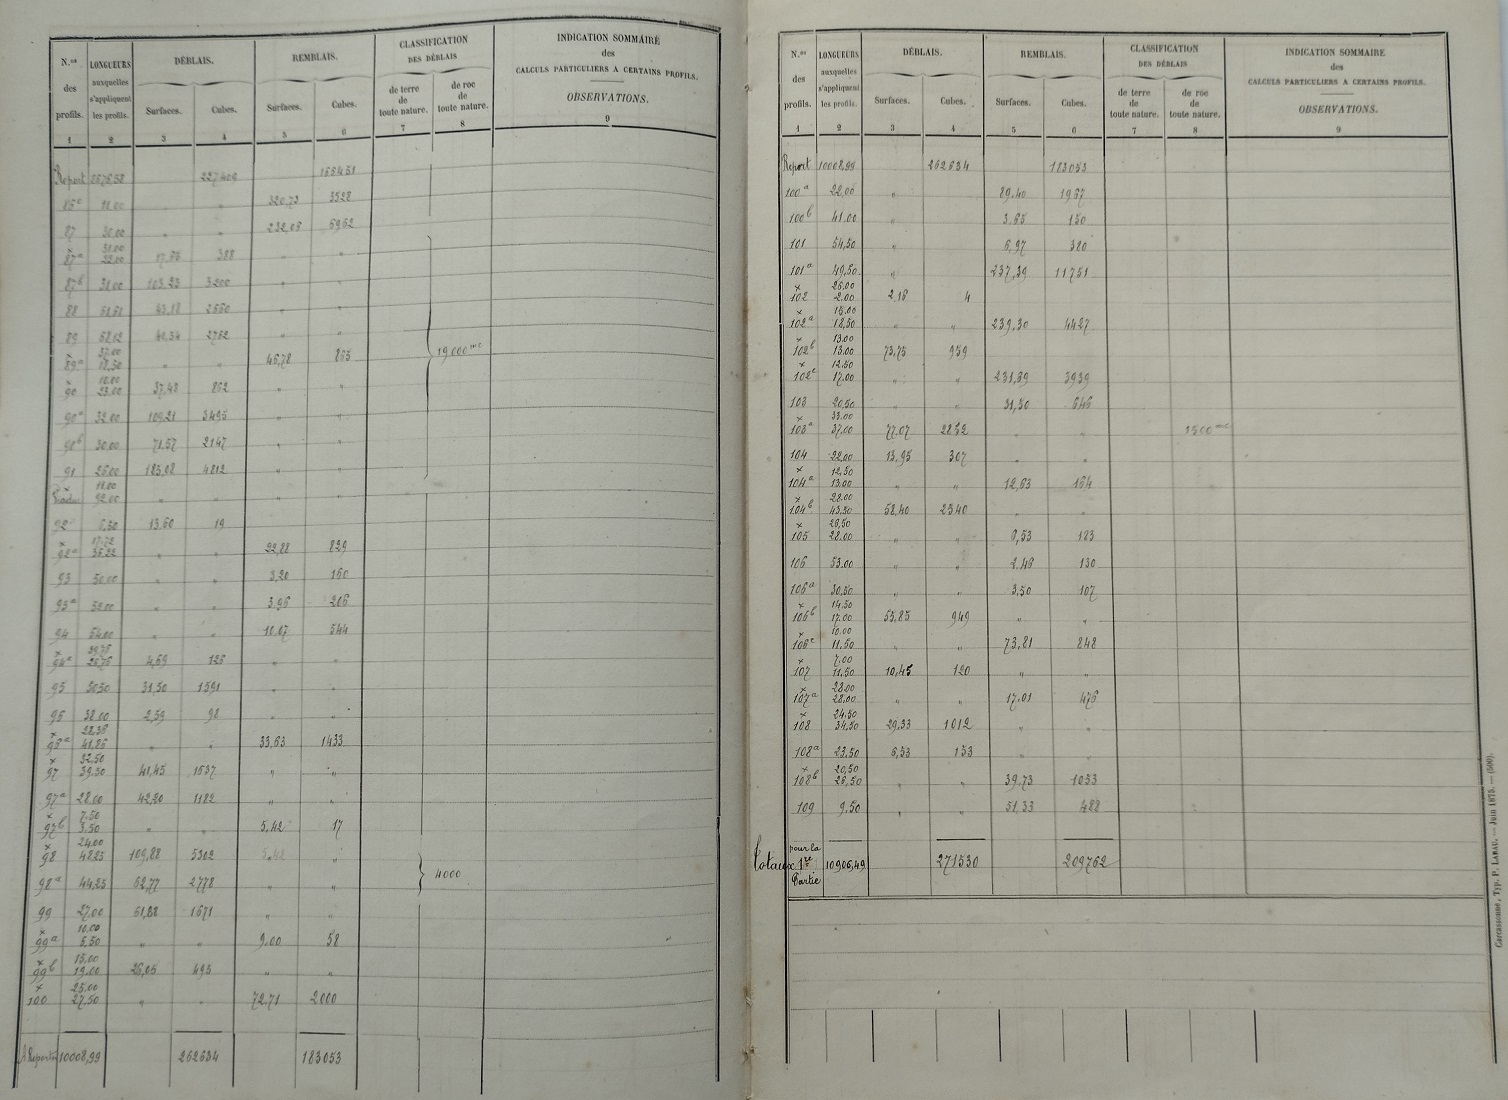 N.os des profils. | LONGUEURS auxquelles s'appliquent les profils. | DÉBLAIS. Surfaces. | Cubes. | REMBLAIS. Surfaces. | Cubes. | CLASSIFICATION DES DÉBLAIS de terre de toute nature. | de roc de toute nature. | INDICATION SOMMAIRE des CALCULS PARTICULIERS A CERTAINS PROFILS. OBSERVATIONS.
1 2 3 4 5 6 7 8 9
Report 227409
87 30.00 " " 232,08 6962
x 31.00
87a 22.00 388 " "
87b 31.00 103.23 3200 " "
88 2660 " "
89 68.12 40,54 2762 " "
x 37.00
89a 18,50 " " 46,78 865 19,000 mc
x 18.00
90 23.00 37,48 862 " "
90a 32.00 109,21 3495 " "
90b 30.00 71.57 2147 " "
91 26.00 185,08 4812 " "
x 11.00
92.00 " " " "
92 6,30 13,60 19
x 17,72
92a 36,22 " " 22,88 829
93 50.00 " " 3,20 160
93a 52.00 " " 3,96 206
94 54.00 " " 10,07 544
x 29,75
94a 26,75 4,69 126 " "
95 50.50 31,50 1591 " "
96 38.00 2,59 98 " "
x 28,36
96a 41,86 " " 33,63 1433
x 32,50
97 39.50 41,45 1637 " "
97a 28.00 42,20 1182 " "
x 7,50
97b 3,50 " " 5,42 17
x 24.00
98 48.25 109,88 5302 "
98a 44,25 62,77 2778 " " 4000
99 27,00 61,88 1671 " "
x 10.00
99a 6,50 " " 9.00 58
x 15,00
99b 19.00 26,05 495 " "
x 25.00
100 27,50 " " 72,71 2000
A Reporter 10008,99 262634 183053
N.os des profils. | LONGUEURS auxquelles s'appliquent les profils. | DÉBLAIS. Surfaces. | Cubes. | REMBLAIS. Surfaces. | Cubes. | CLASSIFICATION DES DÉBLAIS de terre de toute nature. | de roc de toute nature. | INDICATION SOMMAIRE des CALCULS PARTICULIERS A CERTAINS PROFILS. OBSERVATIONS.
1 2 3 4 5 6 7 8 9
Report 10008,99 262634 183053
100a 22,00 " 89.40 1967
100b 41.00 " 3.65 150
101 54,50 " 6,97 380
101a 49,50 " 237,39 11751
x 26.00
102 2.00 2,18 4
x 15.00
102a 18,50 " " 239,30 4427
x 13.00
102b 13.00 73,75 959
x 12.50
102c 17.00 " " 231,69 3939
103 20,50 " " 31,50 646
x 33.00
103a 37,00 77,07 2852 " " 1500 mc
104 22,00 13,95 307 " "
x 12,50
104a 13.00 " " 12,63 164
x 28.00
104b 43.50 58,40 2540 " "
x 26,50
105 28.00 " " 6,53 183
106 53.00 " " 2.46 130
106a 30,50 " " 3,50 107
x 14.50
106b 17.00 55,85 949 " "
x 10.00
106c 11.50 " " 73,81 848
x 7,00
107 11,50 10,45 120 " "
x 23.00
107a 28.00 " " 17.01 476
x 24.50
108 34,50 29,33 1012 "
108a 23.50 6,53 153 "
x 20,50
108b 26,50 " " 39,73 1053
109 9.50 " " 51,33 488
Totaux pour la 1re Partie 10906,49 271530 209762
Carcassonne, Typ. P. LABAU. — Juin 1875. — (500).